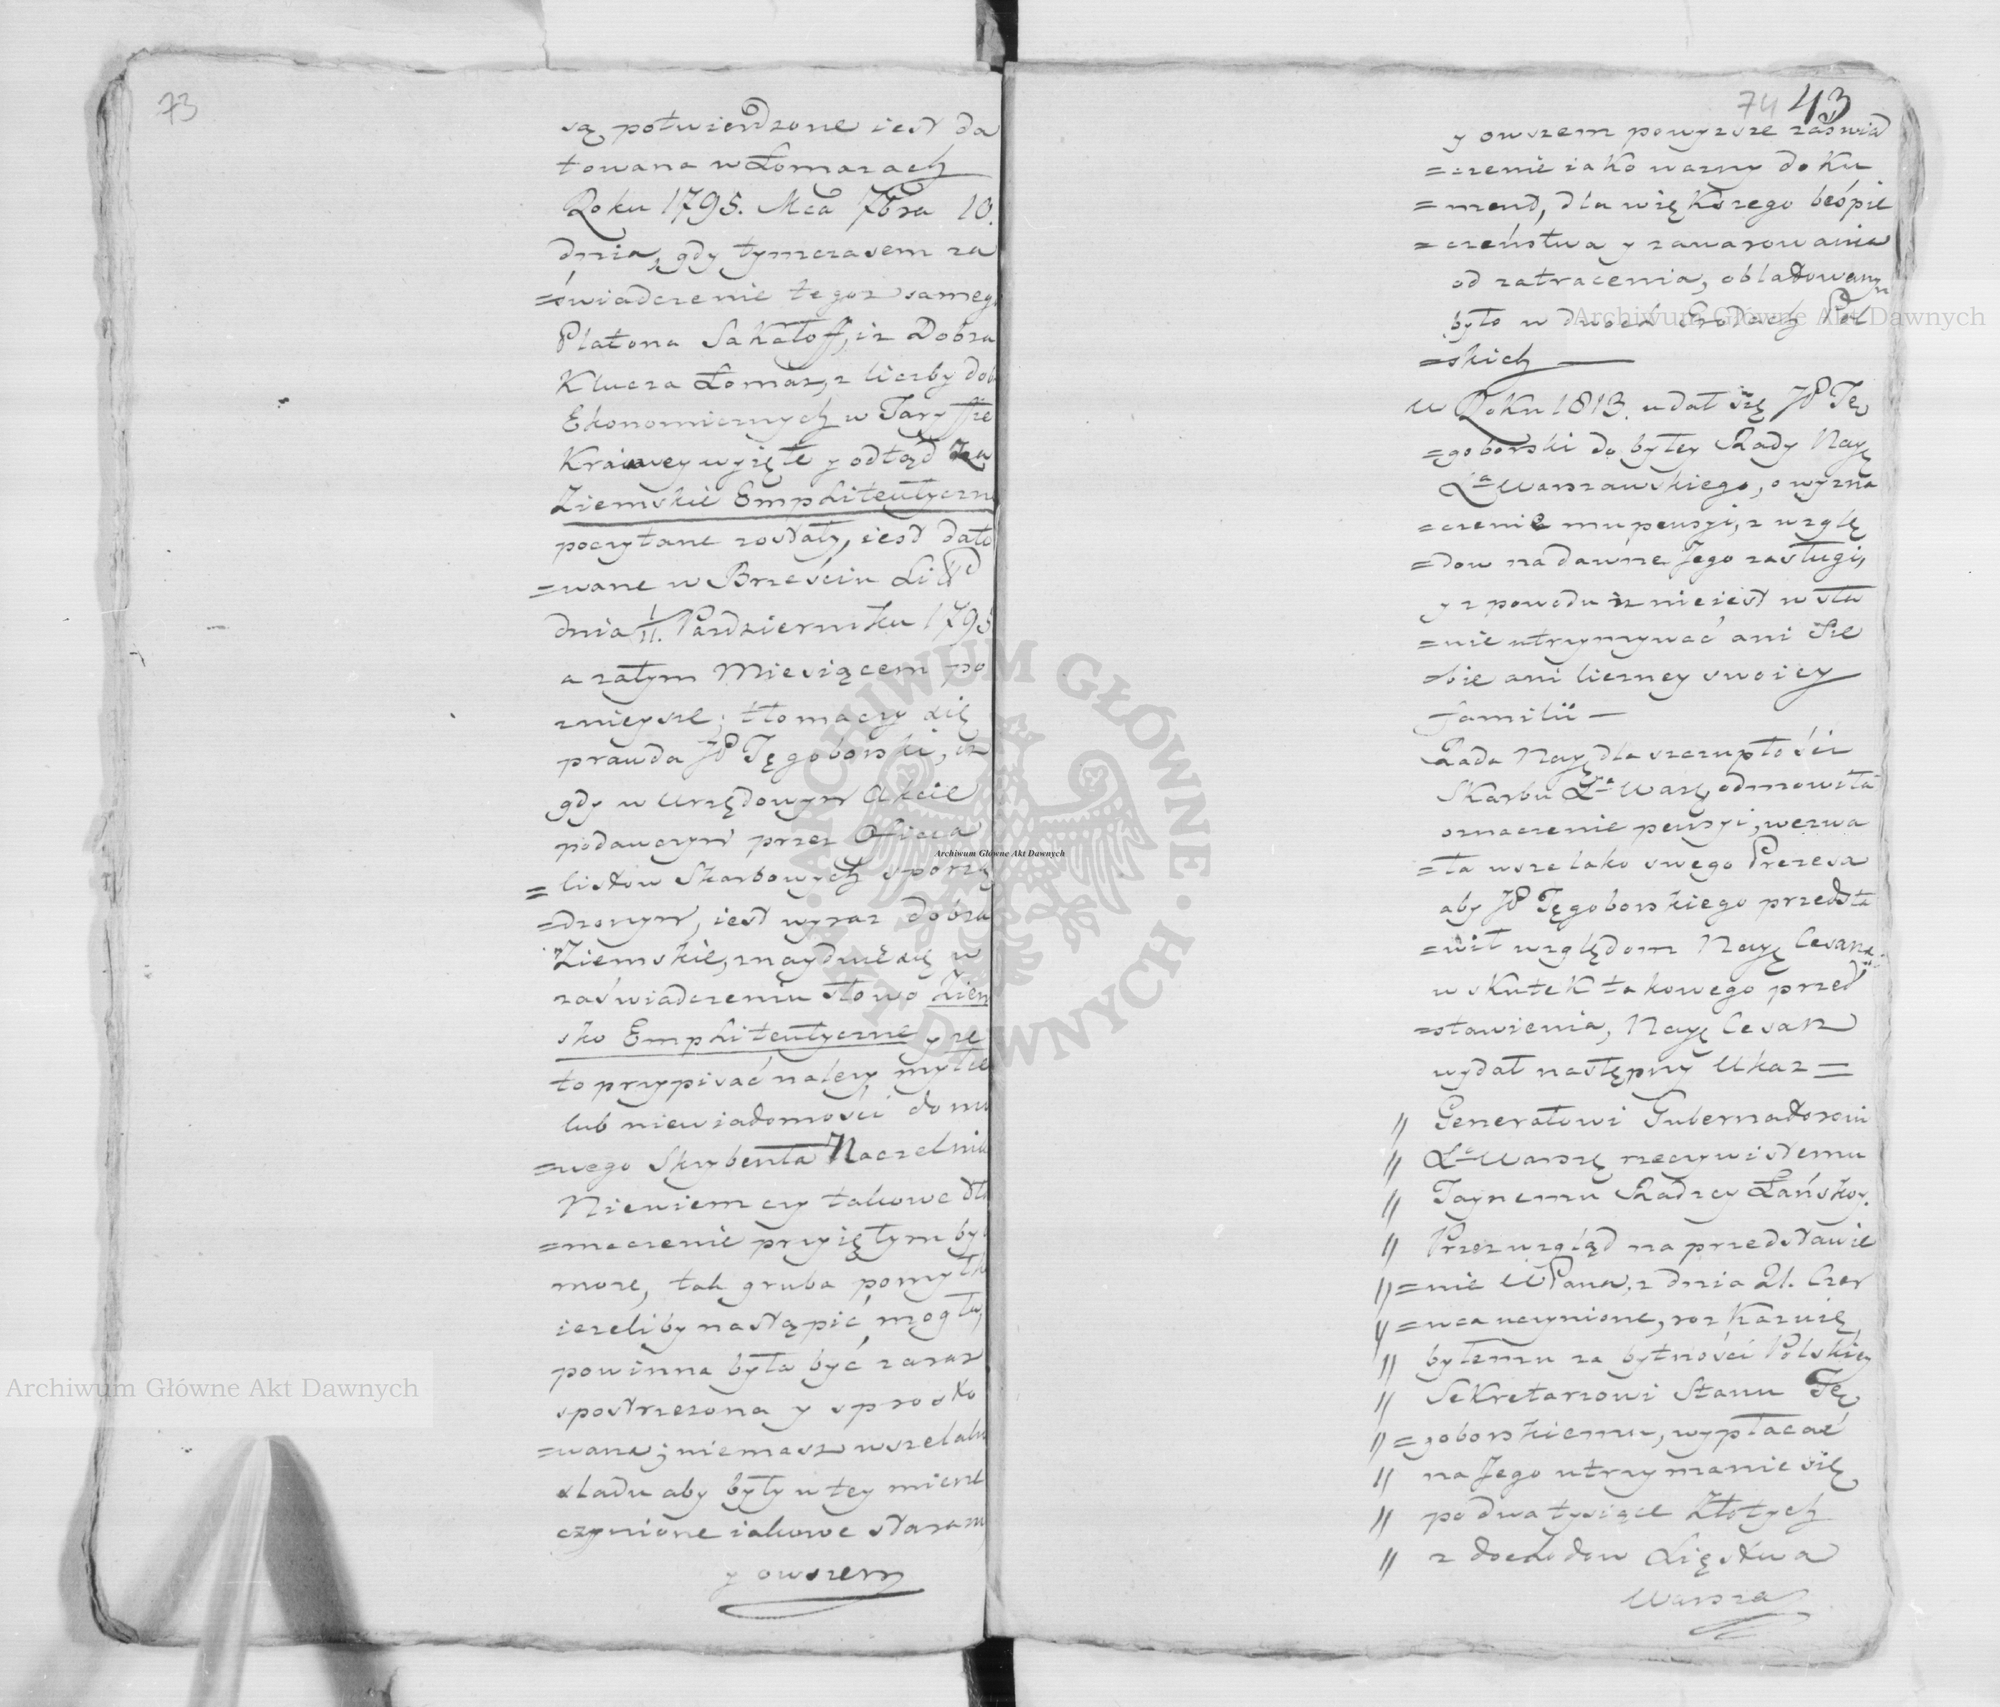 73
są potwierdzone iest da
towana w Łomazach
Roku 1795. Mca 7bra 10.
dnia, gdy tymczasem za
=świadczenie tegoz samego
Platona Sakałoff, iz Dobra
Klucza Łomaz, z liczby dob
Ekonomicznych w Taryffie
Kraiowey wyięte y odtąd za
Ziemskie Emphiteutyczne
poczytane zostały, iest dato
=wane w Brześciu Litt
dnia 1/11. Pazdziernika 1795
a zatym Miesiącem po
znieysze; tłomaczy się
prawda JP Tęgoborski, iz
gdy w urzędowym Akcie
podawczym przez Officya
=listow Skarbowych sporzą
=dzonym, iest wyraz dobra
Ziemskie, znayduie się w
zaświadczeniu słowo Ziem
sko Emphiteutyczne y ze
to przypisać nalezy myłce
lub niewiadomości domo
=wego Skrybenta Naczelnika
Niewiem czy takowe tło
=maczenie przyiętym być
moze, tak gruba pomyłka
iezeliby nastąpić mogła,
powinna była być zaraz
spostrzezona y sprosto
=wana; niemasz wszelako
sladu aby były w tey mierze
czynione iakowe starania
y owszem
Archiwum Główne Akt Dawnych
74 43
y owszem powyzsze zaświad
=czenie iako wazny doku
=ment, dla większego beśpie
=czeństwa y zawarowania
od zatracenia, oblatowanym
było w dwoch Grodach Pol
=skich
w Roku 1813. udał się JP Tę
=goborski do byłey Rady Nayę
Xa Warszawskiego, o wyzna
=czenie mu pensyi, z wzglę
=dow na dawne Jego zasługi,
y z powodu iz nieiest w sta
=nie utrzymywać ani Sie
=bie ani liczney swoiey
familii
Rada Nayę dla szczupłości
Skarbu Xa Warę, odmowiła
oznaczenie pensyi, wezwa
=ła wszelako swego Prezesa
aby JP Tęgoborskiego przedsta
=wił względom Nayę Cesarz:
w skutek takowego przed
=stawienia, Nayę Cesarz
wydał następny Ukaz =
// Generałowi Gubernatorowi
// Xa Warszę rzeczywistemu
// Taynemu Radzcy Łańskoy.
// Przez wzgląd na przedstawie
// =nie WPana, z dnia 21. Czer
// =wca uczynione, rozkazuię
// byłemu za bytności Polskiey
// Sekretarzowi Stanu Tę
// =goborskiemu, wypłacać
// na Jego utrzymanie się
// po dwa tysiące Złotych
// z dochodow Xięstwa
Warsza
Archiwum Główne Akt Dawnych
ARCHIWUM GŁÓWNE AKT DAWNYCH
Archiwum Główne Akt Dawnych